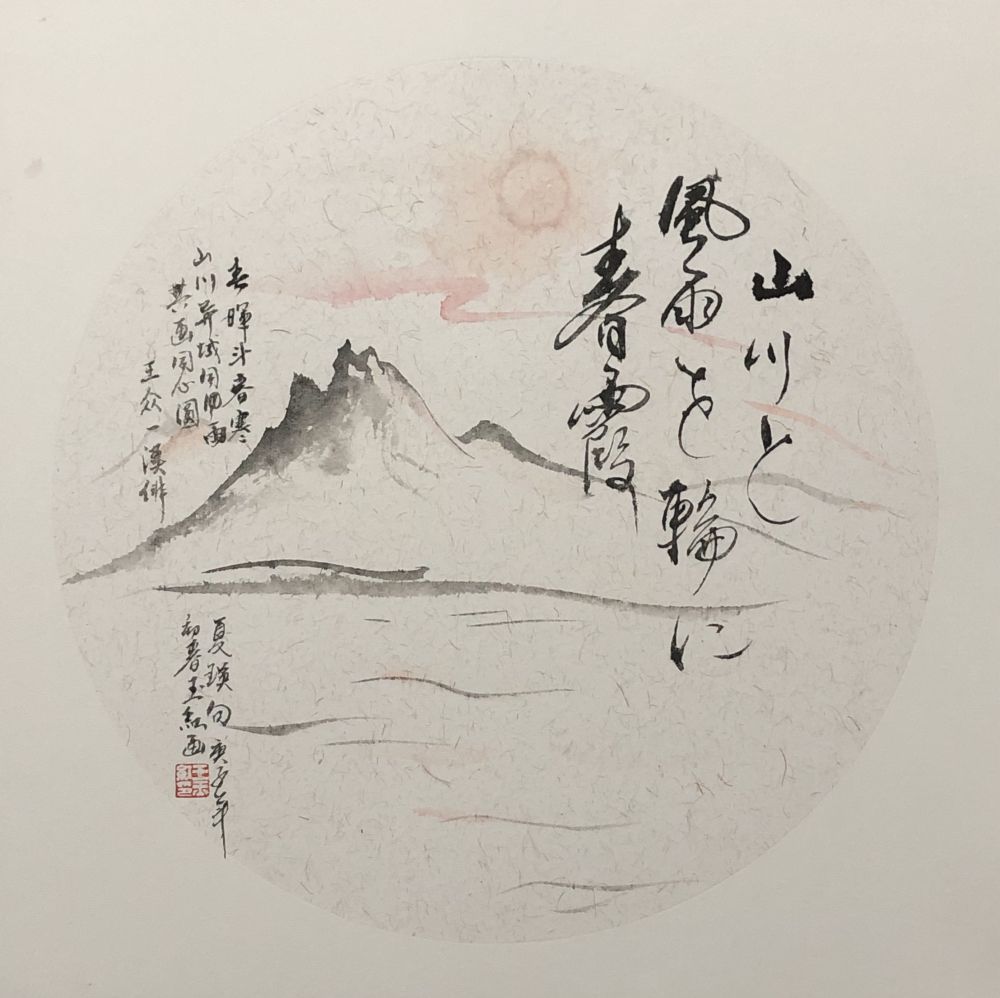 山川と
風雨を輪に
春霞
春暉斗春寒
山川异域同风雨
共画同心圆
王众一漢俳
夏瑛句 庚子年
初春玉紅画